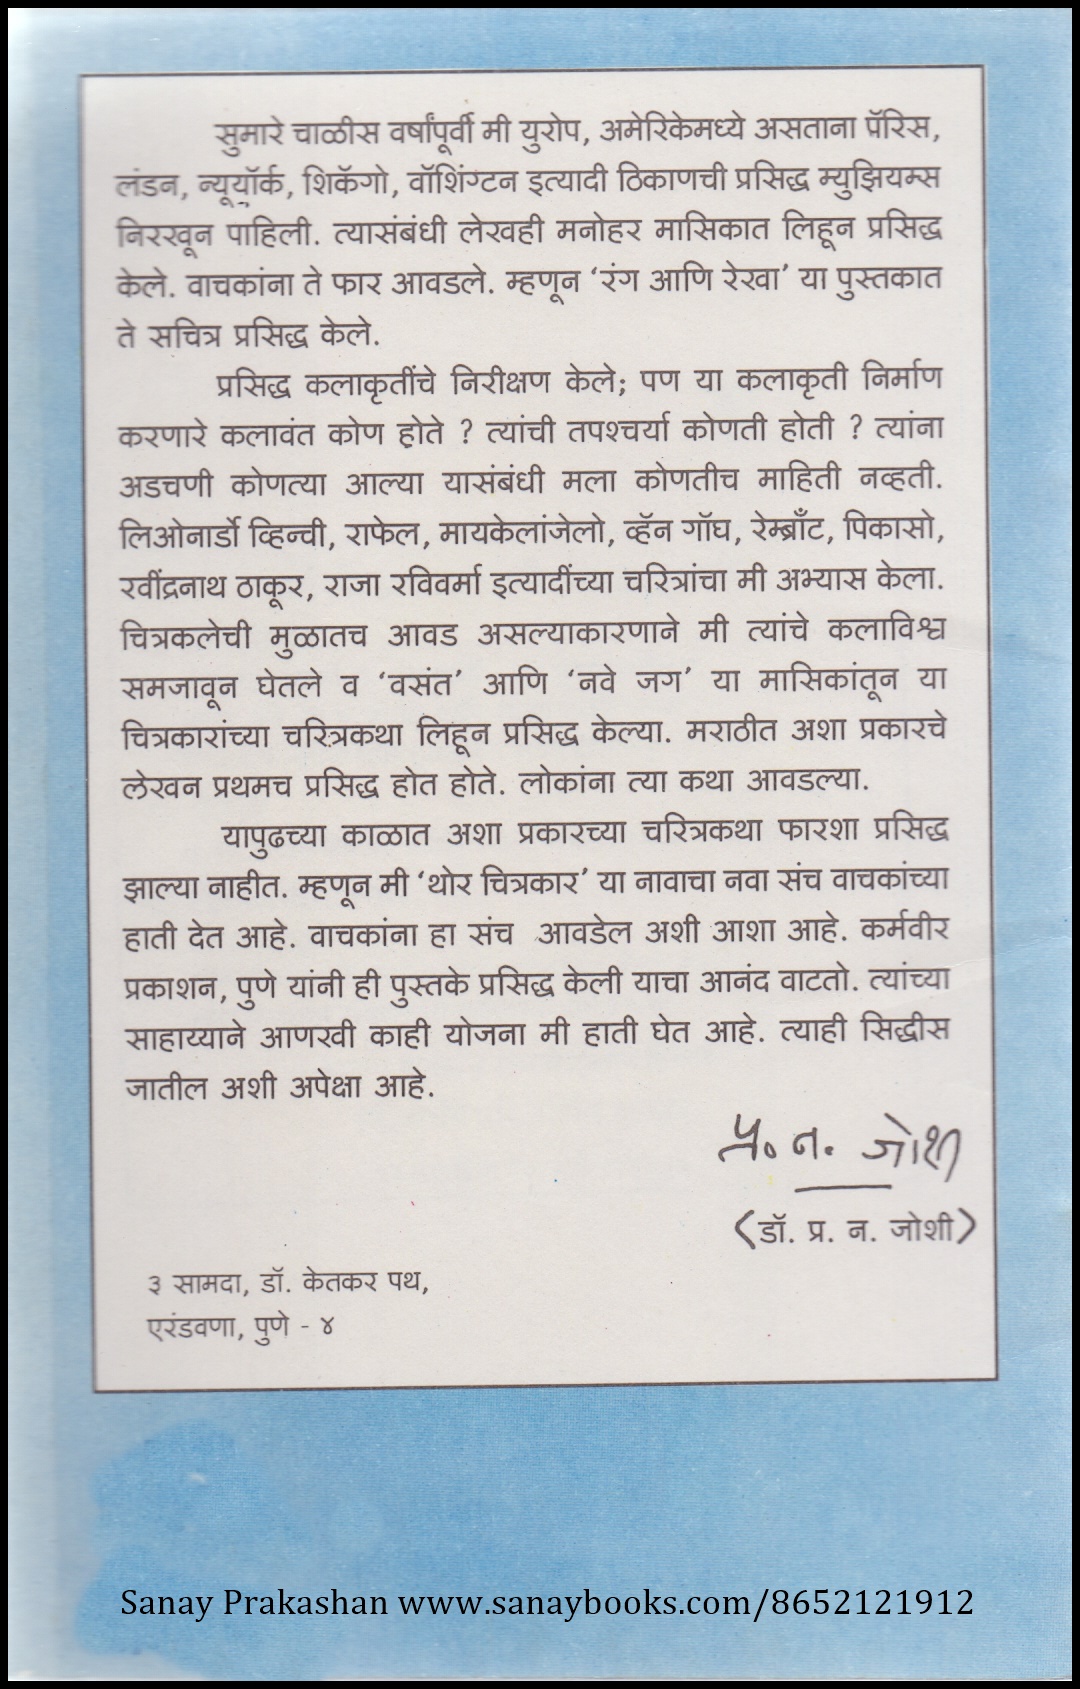 सुमारे चाळीस वर्षांपूर्वी मी युरोप, अमेरिकेमध्ये असताना पॅरिस,
लंडन, न्यूयॉर्क, शिकॅगो, वॉशिंग्टन इत्यादी ठिकाणची प्रसिद्ध म्युझियम्स
निरखून पाहिली. त्यासंबंधी लेखही मनोहर मासिकात लिहून प्रसिद्ध
केले. वाचकांना ते फार आवडले. म्हणून ‘रंग आणि रेखा’ या पुस्तकात
ते सचित्र प्रसिद्ध केले.
प्रसिद्ध कलाकृतींचे निरीक्षण केले; पण या कलाकृती निर्माण
करणारे कलावंत कोण होते ? त्यांची तपश्चर्या कोणती होती ? त्यांना
अडचणी कोणत्या आल्या यासंबंधी मला कोणतीच माहिती नव्हती.
लिओनार्डो व्हिन्ची, राफेल, मायकेलांजेलो, व्हॅन गॉघ, रेम्ब्राँट, पिकासो,
रवींद्रनाथ ठाकूर, राजा रविवर्मा इत्यादींच्या चरित्रांचा मी अभ्यास केला.
चित्रकलेची मुळातच आवड असल्याकारणाने मी त्यांचे कलाविश्व
समजावून घेतले व ‘वसंत’ आणि ‘नवे जग’ या मासिकांतून या
चित्रकारांच्या चरित्रकथा लिहून प्रसिद्ध केल्या. मराठीत अशा प्रकारचे
लेखन प्रथमच प्रसिद्ध होत होते. लोकांना त्या कथा आवडल्या.
यापुढच्या काळात अशा प्रकारच्या चरित्रकथा फारशा प्रसिद्ध
झाल्या नाहीत. म्हणून मी ‘थोर चित्रकार’ या नावाचा नवा संच वाचकांच्या
हाती देत आहे. वाचकांना हा संच आवडेल अशी आशा आहे. कर्मवीर
प्रकाशन, पुणे यांनी ही पुस्तके प्रसिद्ध केली याचा आनंद वाटतो. त्यांच्या
साहाय्याने आणखी काही योजना मी हाती घेत आहे. त्याही सिद्धीस
जातील अशी अपेक्षा आहे.
प्र. न. जोशी
(डॉ. प्र. न. जोशी)
३ सामदा, डॉ. केतकर पथ,
एरंडवणा, पुणे - ४
Sanay Prakashan www.sanaybooks.com/8652121912